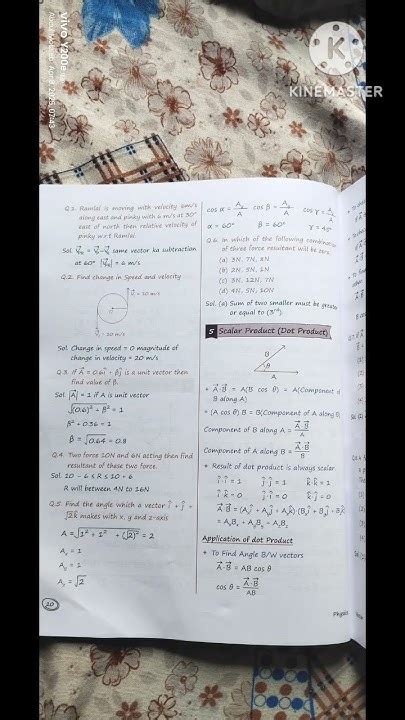 KINEMASTER
vivo Y200e
Q.1. Ramlal is moving with velocity 6m/s
along east and pinky with 6 m/s at 30°
east of north then relative velocity of
pinky w.r.t Ramlal
same vector ka subtraction
Q.2. Find change in Speed and velocity
Sol. Change in speed = 0 magnitude of
change in velocity = 20 m/s
Q.3. if A⃗ = 0.6î + βĵ is a unit vector then
find value of β.
Sol. |A⃗| = 1 if A is unit vector
√(0.6)² + β² = 1
β² + 0.36 = 1
β = √0.64 = 0.8
Q.4. Two force 10N and 6N acting then find
resultant of these two force.
Sol. 10 - 6 ≤ R ≤ 10 + 6
R will between 4N to 16N
Q.5. Find the angle which a vector î + ĵ +
√2k̂ makes with x, y and z-axis
A = √1² + 1² + (√2)² = 2
Aₓ = 1
A_z = √2
20
α = 60° β = 60° γ = 45°
Q.6. In which of the following combination
of three force resultant will be zero.
(a) 3N, 7N, 8N
(b) 2N, 5N, 1N
(c) 3N, 12N, 7N
(d) 4N, 5N, 10N
Sol. (a) Sum of two smaller must be greater
or equal to (3ʳᵈ).
5 Scalar Product (Dot Product)
B
θ
A
+ A⃗·B⃗ = A(B cos θ) = A(Component of
B along A)
= (A cos θ) B = B(Component of A along B)
Component of B along A = A⃗·B⃗/A
Component of A along B = A⃗·B⃗/B
+ Result of dot product is always scalar.
î·î = 1 ĵ·ĵ = 1 k̂·k̂ = 1
Application of dot Product
+ To Find Angle B/W vectors
A⃗·B⃗ = AB cos θ
cos θ = A⃗·B⃗/AB
Physics